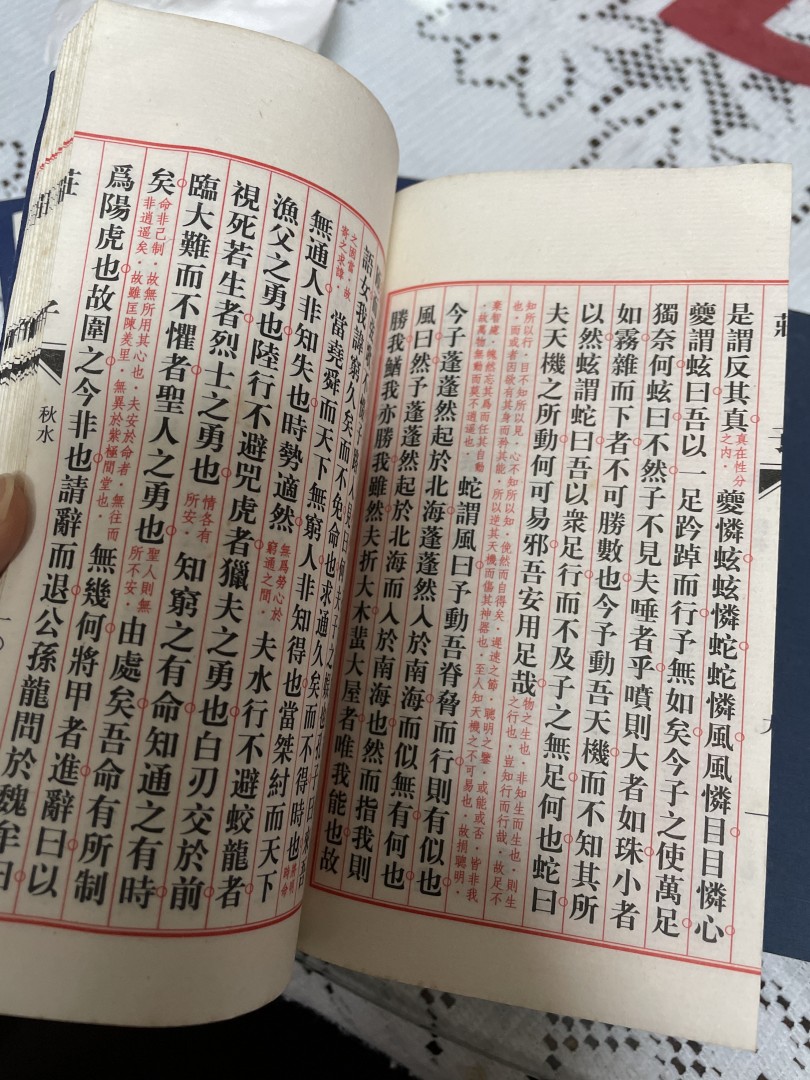 是謂反其真真在性分之内。夔憐蚿蚿憐蛇蛇憐風風憐目目憐心
夔謂蚿曰吾以一足趻踔而行予無如矣今子之使萬足
獨奈何蚿曰不然子不見夫唾者乎噴則大者如珠小者
如霧雜而下者不可勝數也今予動吾天機而不知其所
以然蚿謂蛇曰吾以衆足行而不及子之無足何也蛇曰
夫天機之所動何可易邪吾安用足哉物之生也．非知生而生也．則生之行也．豈知行而行哉．故足不
知所以行．目不知所以見．心不知所以知．俛然而自得矣．遲速之節．聰明之鑒．或能或否．皆非我
也．而或者因欲有其身而矜其能．所以逆其天機而傷其神器也．至人知天機之不可易也．故捐聰明．
棄智慮．魄然忘其爲而任其自動．故萬物無動而莫不逍遥也．蛇謂風曰予動吾脊脅而行則有似也
今子蓬蓬然起於北海蓬蓬然入於南海而似無有何也
風曰然予蓬蓬然起於北海而入於南海也然而指我則
勝我鰌我亦勝我雖然夫折大木蜚大屋者唯我能也故
莊
九
語女我諱窮久矣而不免命也求通久矣而不得時也
當堯舜而天下無窮人非知得也當桀紂而天下
無通人非知失也時勢適然無爲勞心於窮通之間．夫水行不避蛟龍者
漁父之勇也陸行不避兕虎者獵夫之勇也白刃交於前
視死若生者烈士之勇也情各有所安．知窮之有命知通之有時
臨大難而不懼者聖人之勇也聖人則無所不安．由處矣吾命有所制
矣命非己制．故無所用其心也．夫安於命者．無往而非逍遥矣．故雖匡陳羑里．無異於紫極間堂也．無幾何將甲者進辭曰以
爲陽虎也故圍之今非也請辭而退公孫龍問於魏牟曰
莊
子
秋水
一〇